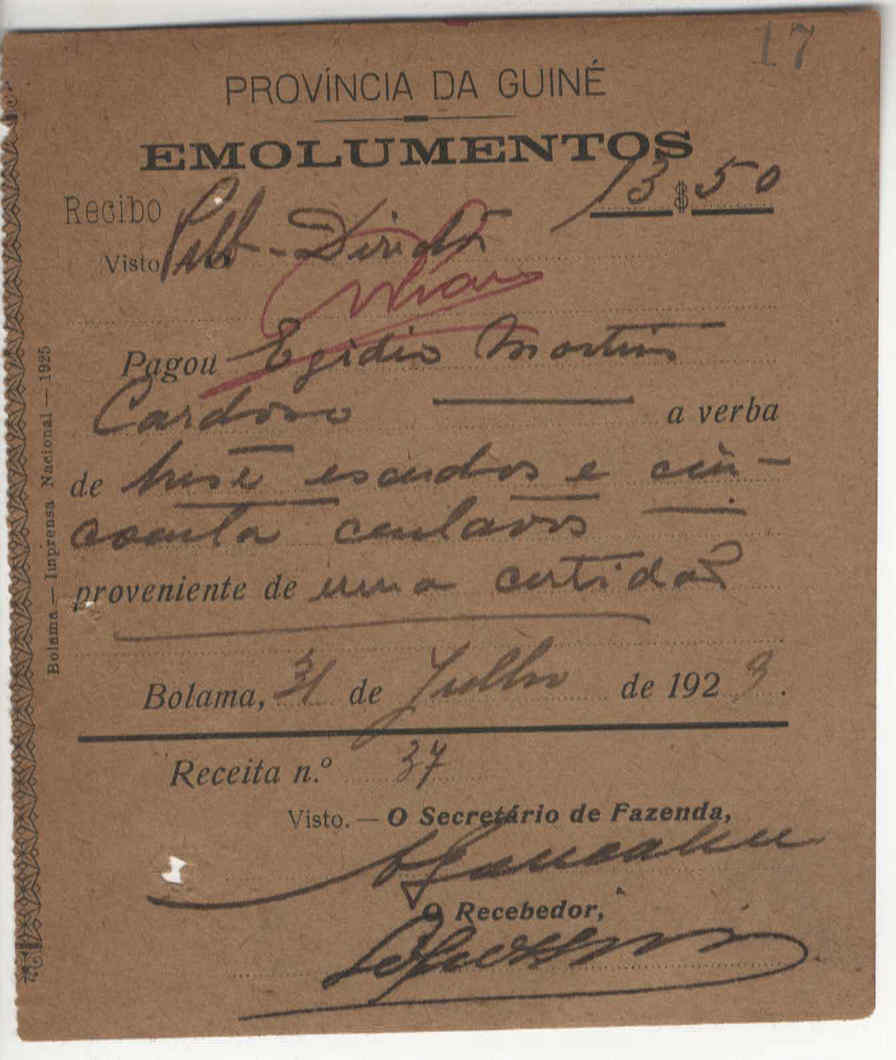 17
PROVÍNCIA DA GUINÉ
EMOLUMENTOS
Recibo 13$50
Visto
Pagou Egidio Martins
Cardoso a verba
de trese escudos e cin-
coenta centavos
proveniente de uma certidão
Bolama, 31 de Julho de 1929.
Receita n.º 37
Visto. — O Secretário de Fazenda,
O Recebedor,
Bolama. — Imprensa Nacional — 1925